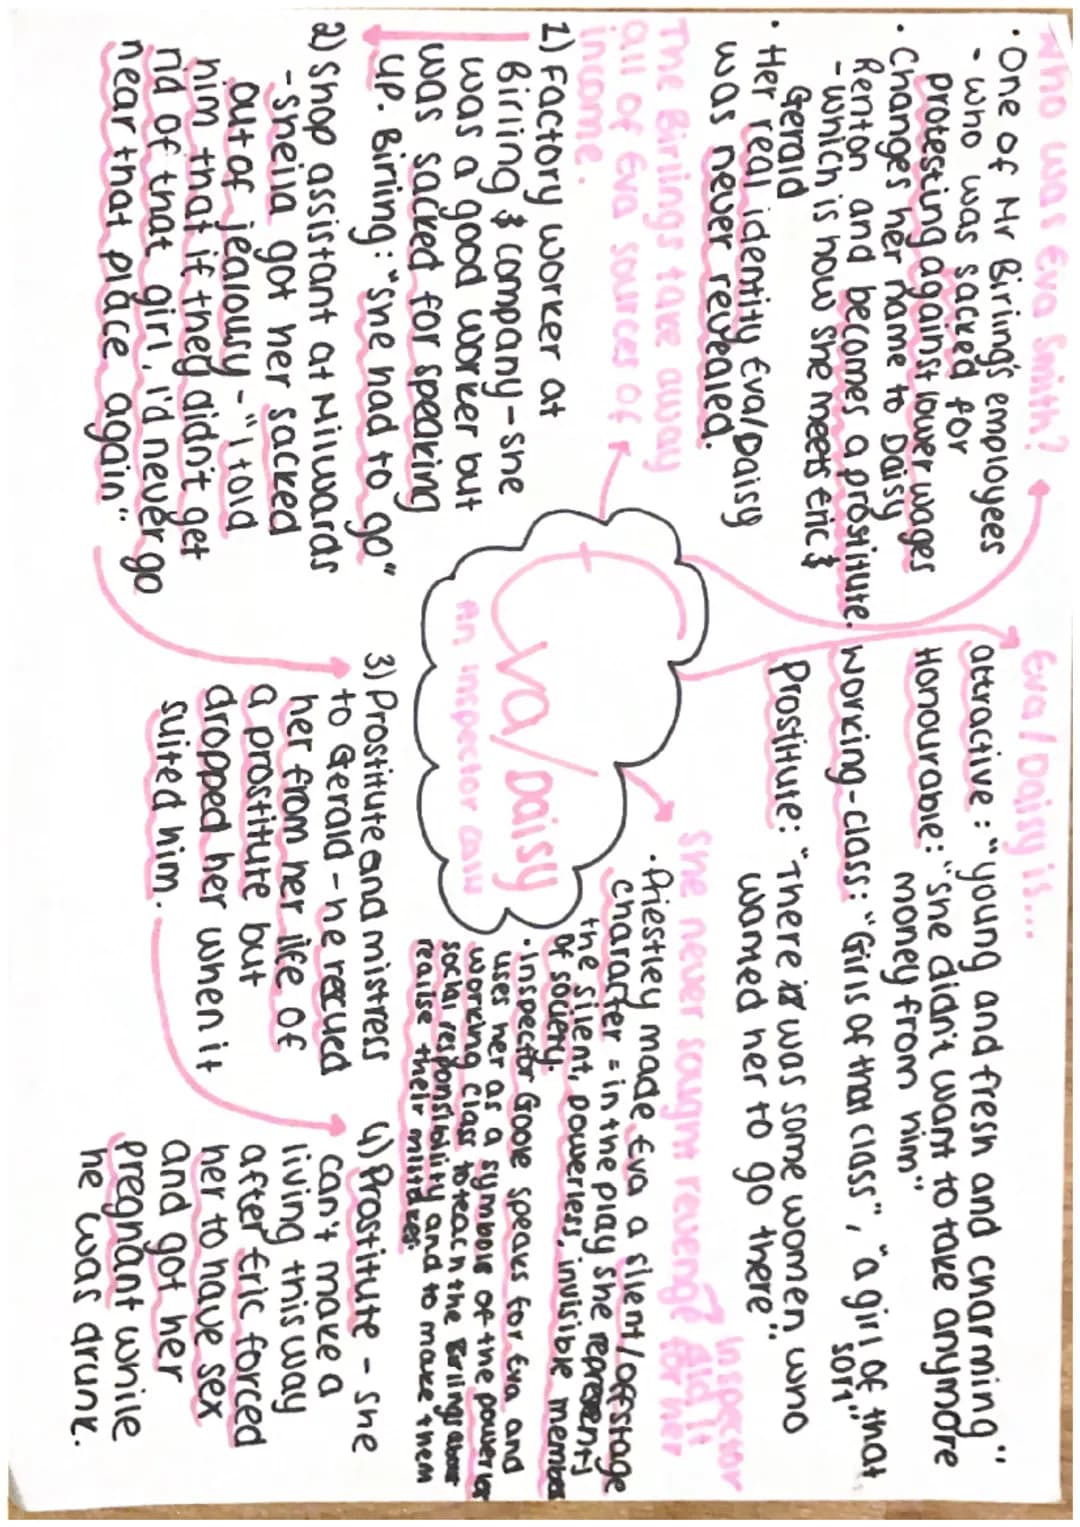 Who was Eva Smith?
· One of Mr Birling's employees
- who was sacked for
protesting against lower wages
· Changes her name to Daisy
Renton and becomes a prostitute.
- which is how she meets Eric &
Gerald
· Her real identity Eva/Daisy
was never revealed.
Eva/Daisy is...
attractive: "young and fresh and charming".
Honourable: "she didn't want to take anymore
money from him"
working-class: "Girls of that class", "a girl of that
sort"
Prostitute: "There was some women who
wanted her to go there".
The Birlings take away
all of Eva sources of
income.
1) Factory worker at
Birling & company - she
was a good worker but
was sacked for speaking
up. Birling: "she had to go"
2) Shop assistant at Milwards
- Sheila got her sacked
out of jealousy - "I told
him that if they didn't get
rid of that girl, I'd never go
near that place again".
Eva/Daisy
An inspector calls
She never saught revenge?
Inspector
did it
for her
· Priestley made Eva a slient/offstage
character = in the play she represents
the silent, powerless, invisible members
of society.
· inspector Goole speaks for Eva and
uses her as a symbol of the powerless
working class to teach the Birlings about
social responsibility and to make them
realise their mistakes.
3) Prostitute and mistress
to Gerald - he rescued
her from her life of
a prostitute but
dropped her when it
suited him.
4) Prostitute - she
can't make a
living this way
after Eric forced
her to have sex
and got her
pregnant while
he was drunk.